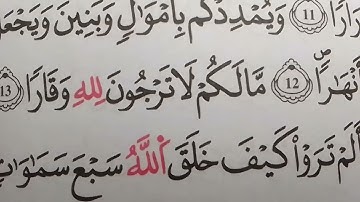 رَارًا ⑪ وَيُمْدِدْكُم بِأَمْوَٰلٍ وَبَنِينَ وَيَجْعَل
أَنْهَٰرًا ⑫ مَّا لَكُمْ لَا تَرْجُونَ لِلَّهِ وَقَارًا ⑬
أَلَمْ تَرَوْا۟ كَيْفَ خَلَقَ ٱللَّهُ سَبْعَ سَمَٰوَٰتٍ